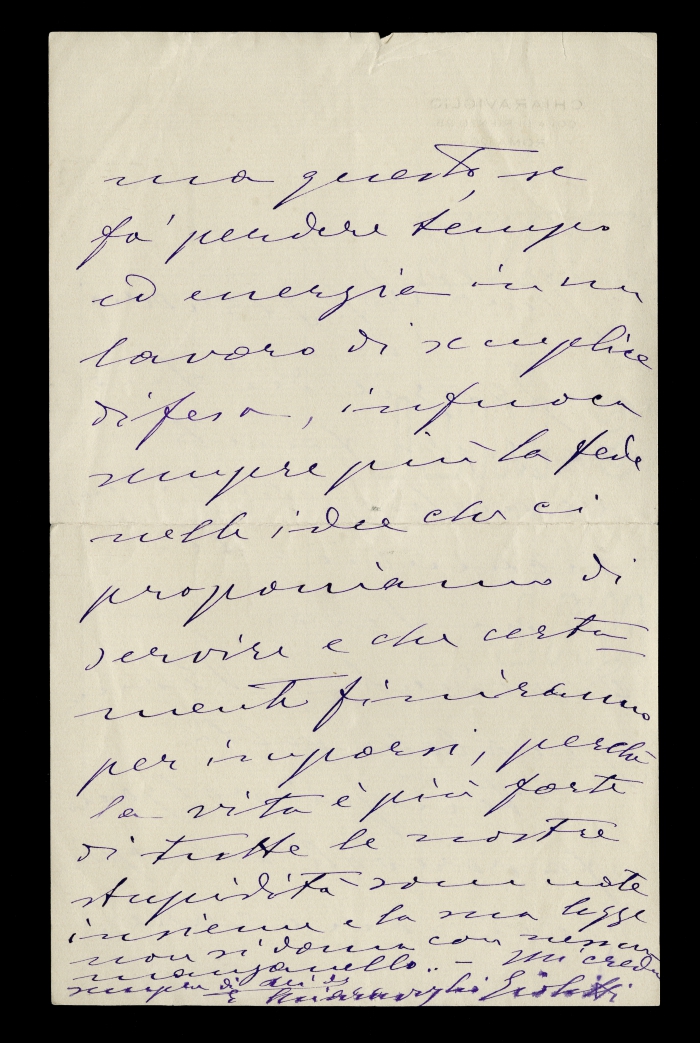 ma questo, se
fa' perdere tempo
ed energia in un
lavoro di semplice
difesa, infuoca
sempre più la fede
nelle idee che ci
proponiamo di
servire e che certa=
mente finiranno
per imporsi, perchè
la vita è più forte
di tutte le nostre
stupidità
insieme e la sua legge
non si doma con nessun
manganello.. – Mi creda
sempre
Chiaraviglio Giolitti
CHIARAVIGLIO